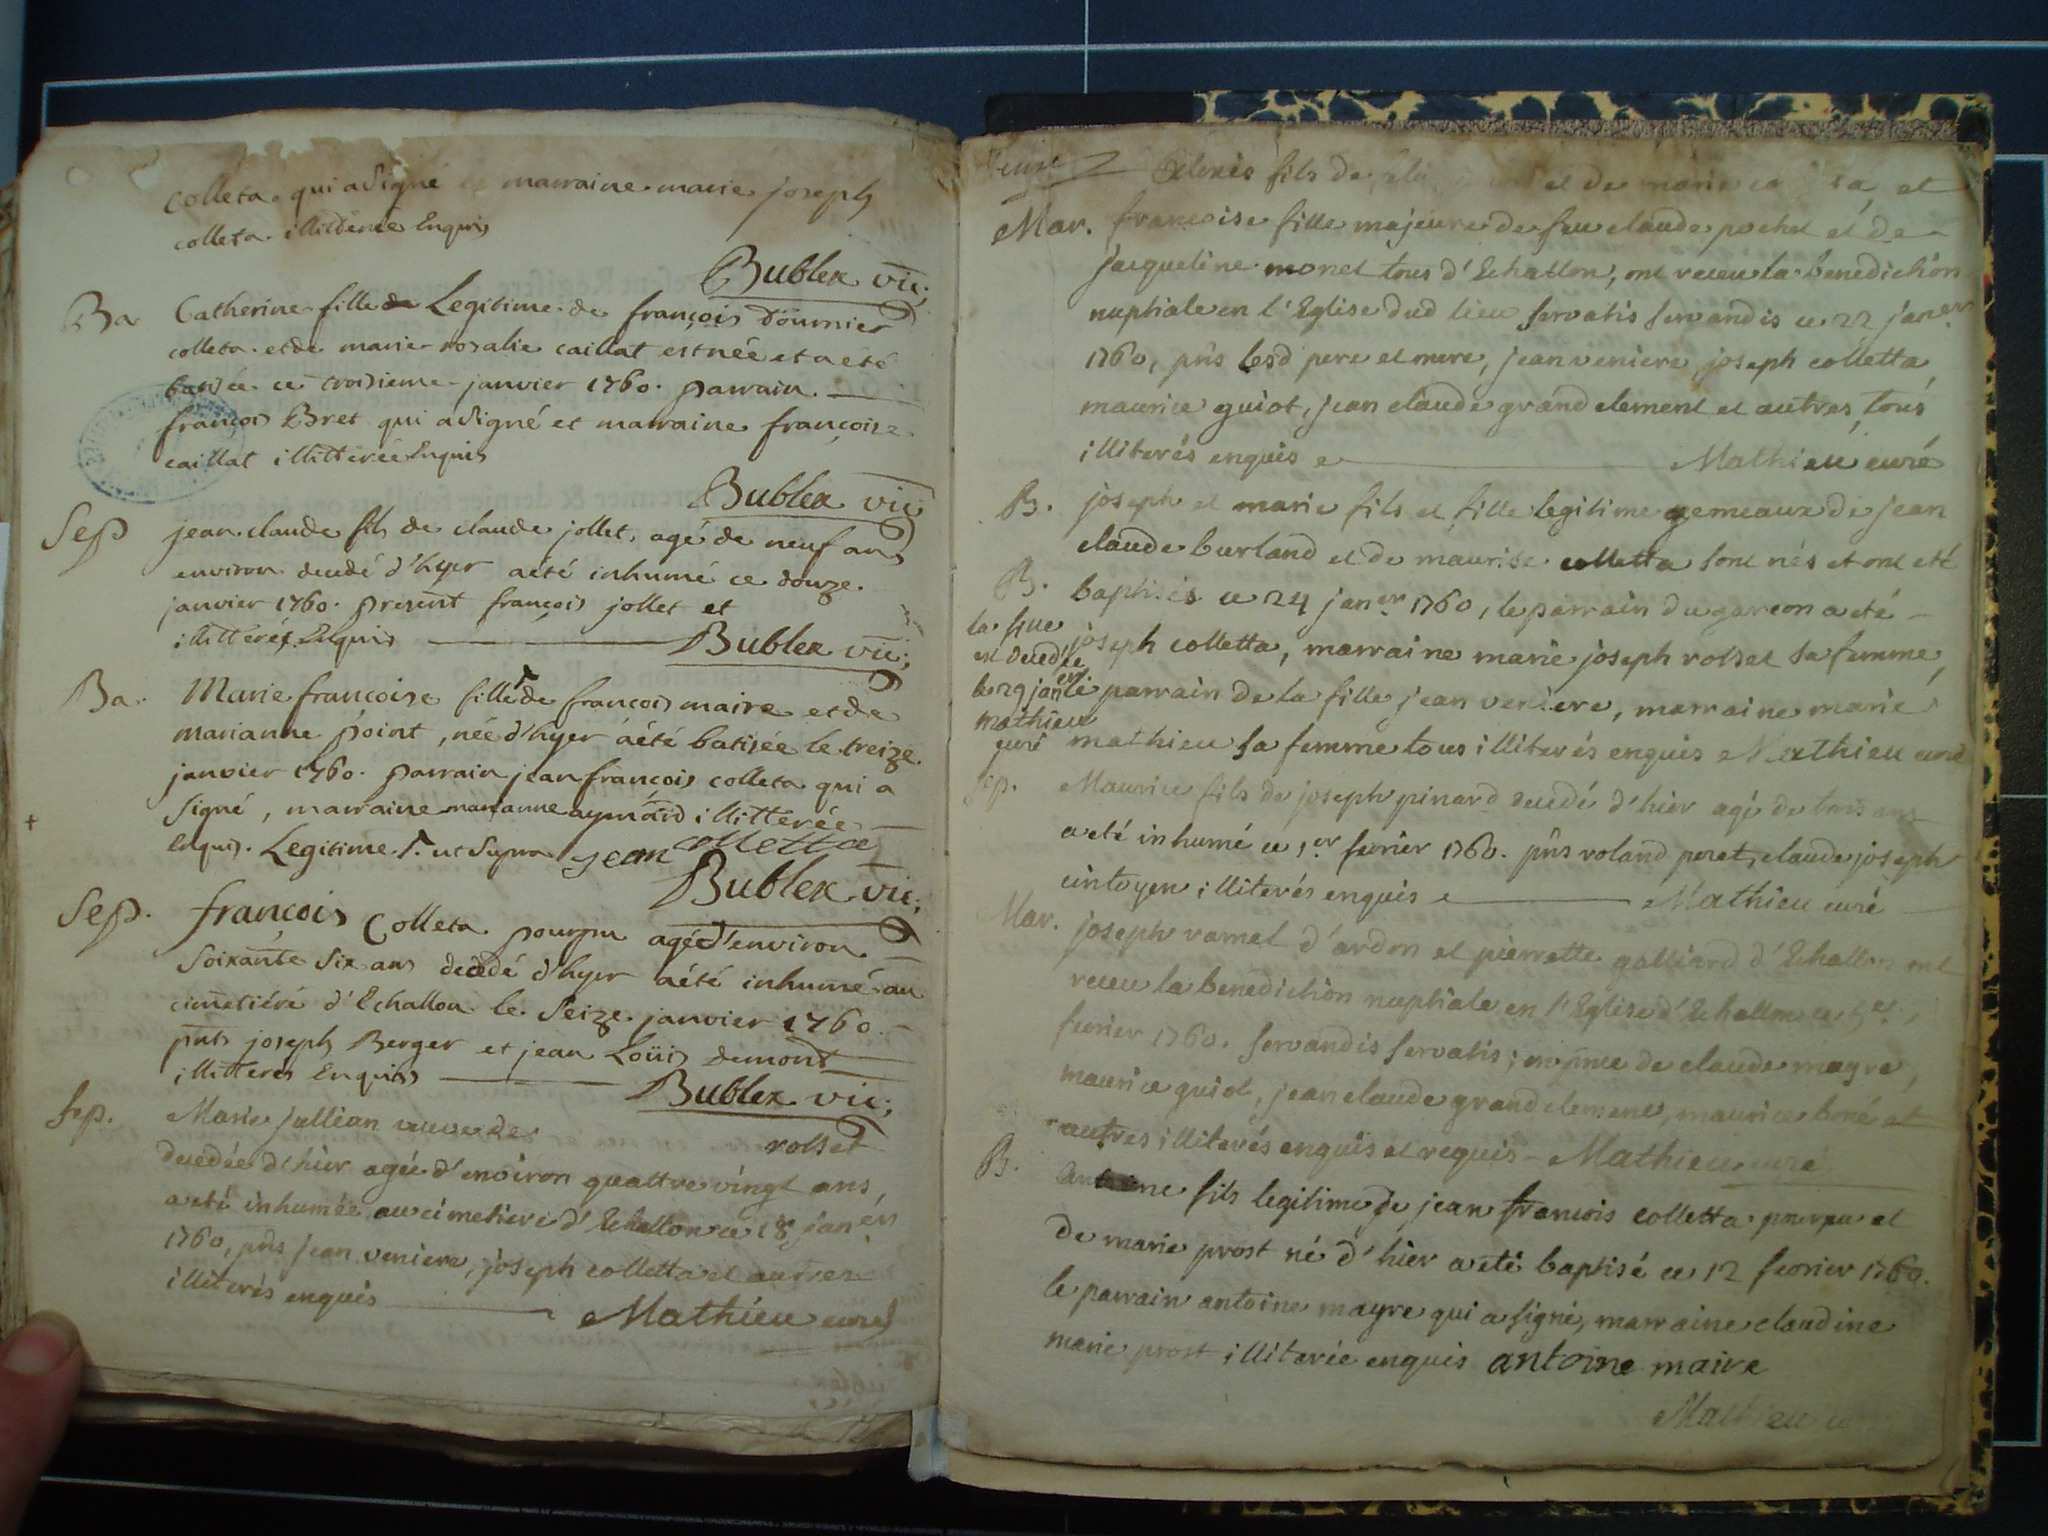 colleta qui a signé et marraine marie joseph
colleta illitérée Enquis
Bublex vic;
Ba Catherine fille de Legitime de françois dournier
colleta et de marie rosalie caillat est née et a été
batisée ce troisieme janvier 1760. parrain
françois Bret qui a signé et marraine françoise
caillat illitterée Enquis
Bublex vic
Sep jean claude fils de claude jollet, agé de neuf ans
environ decedé d'hyer a été inhumé ce douze
janvier 1760. present françois jollet et
illitterés Enquis Bublex vic;
Ba. Marie françoise fille de françois maire et de
marianne point, née d'hyer a été batisée le treize
janvier 1760. parrain jean françois colleta qui a
signé, marraine marianne aymard illitterée
Enquis. Legitime ut supra jean colletta
Bublex vic;
Sep. françois Colleta pourpu agé d'environ
soixante six ans decedé d'hyer a été inhumé au
cimetiére d'Echallon le seize janvier 1760
pnts joseph Berger et jean Loüis demont
illitteres Enquis Bublex vic;
Sep. Marie Jullian veuve de rolset
decedée d'hier agée d'environ quattre vingt ans,
a eté inhumée au cimetiere d'Echallon ce 18 janer
1760, pñs jean veniere, joseph colletta et autres
illiterés enquis Mathieu curé
Alexis fils de et de marie et
Mar. francoise fille majeure de feu claude pochet et de
jacqueline monet tous d'Echallon, ont receu la benediction
nuptiale en l'Eglise dud lieu servatis servandis ce 22 janer
1760, pñs lesd pere et mere, jean veniere, joseph colletta
maurice guiot, jean claude grand clement et autres, tous
illiterés enquis Mathieu curé
B. joseph et marie fils et fille legitime gemeaux de jean
claude burland et de maurise colletta sont nés et ont eté
B. baptisés ce 24 janer 1760, le parrain du garcon a eté
joseph colletta, marraine marie joseph rolset sa femme,
le parrain de la fille jean veniere, marraine marie
mathieu sa femme tous illiterés enquis Mathieu curé
la fille
est decedée
le 29 janer
mathieu
curé
sep. Maurice fils de joseph pinard decedé d'hier agé de trois ans
a eté inhumé ce 1er fevrier 1760. pñs roland peret, claude joseph
cintoyen illiterés enquis Mathieu curé
Mar. joseph ramel d'ardon et pierrette galliard d'Echallon ont
receu la benediction nuptiale en l'Eglise d'Echallon ce
fevrier 1760. servandis servatis; en pñce de claude mayre,
maurice guiot, jean claude grand clement, maurice boné et
autres illiterés enquis et requis Mathieu curé
B. antoine fils legitime de jean francois colletta pourpu et
de marie prost né d'hier a eté baptisé ce 12 fevrier 1760.
le parrain antoine mayre qui a signé, marraine claudine
marie prost illiterée enquis antoine maire
Mathieu